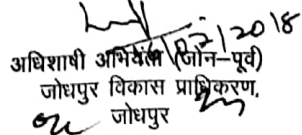 अधिशाषी अभियंता (जोन-पूर्व)
जोधपुर विकास प्राधिकरण,
जोधपुर